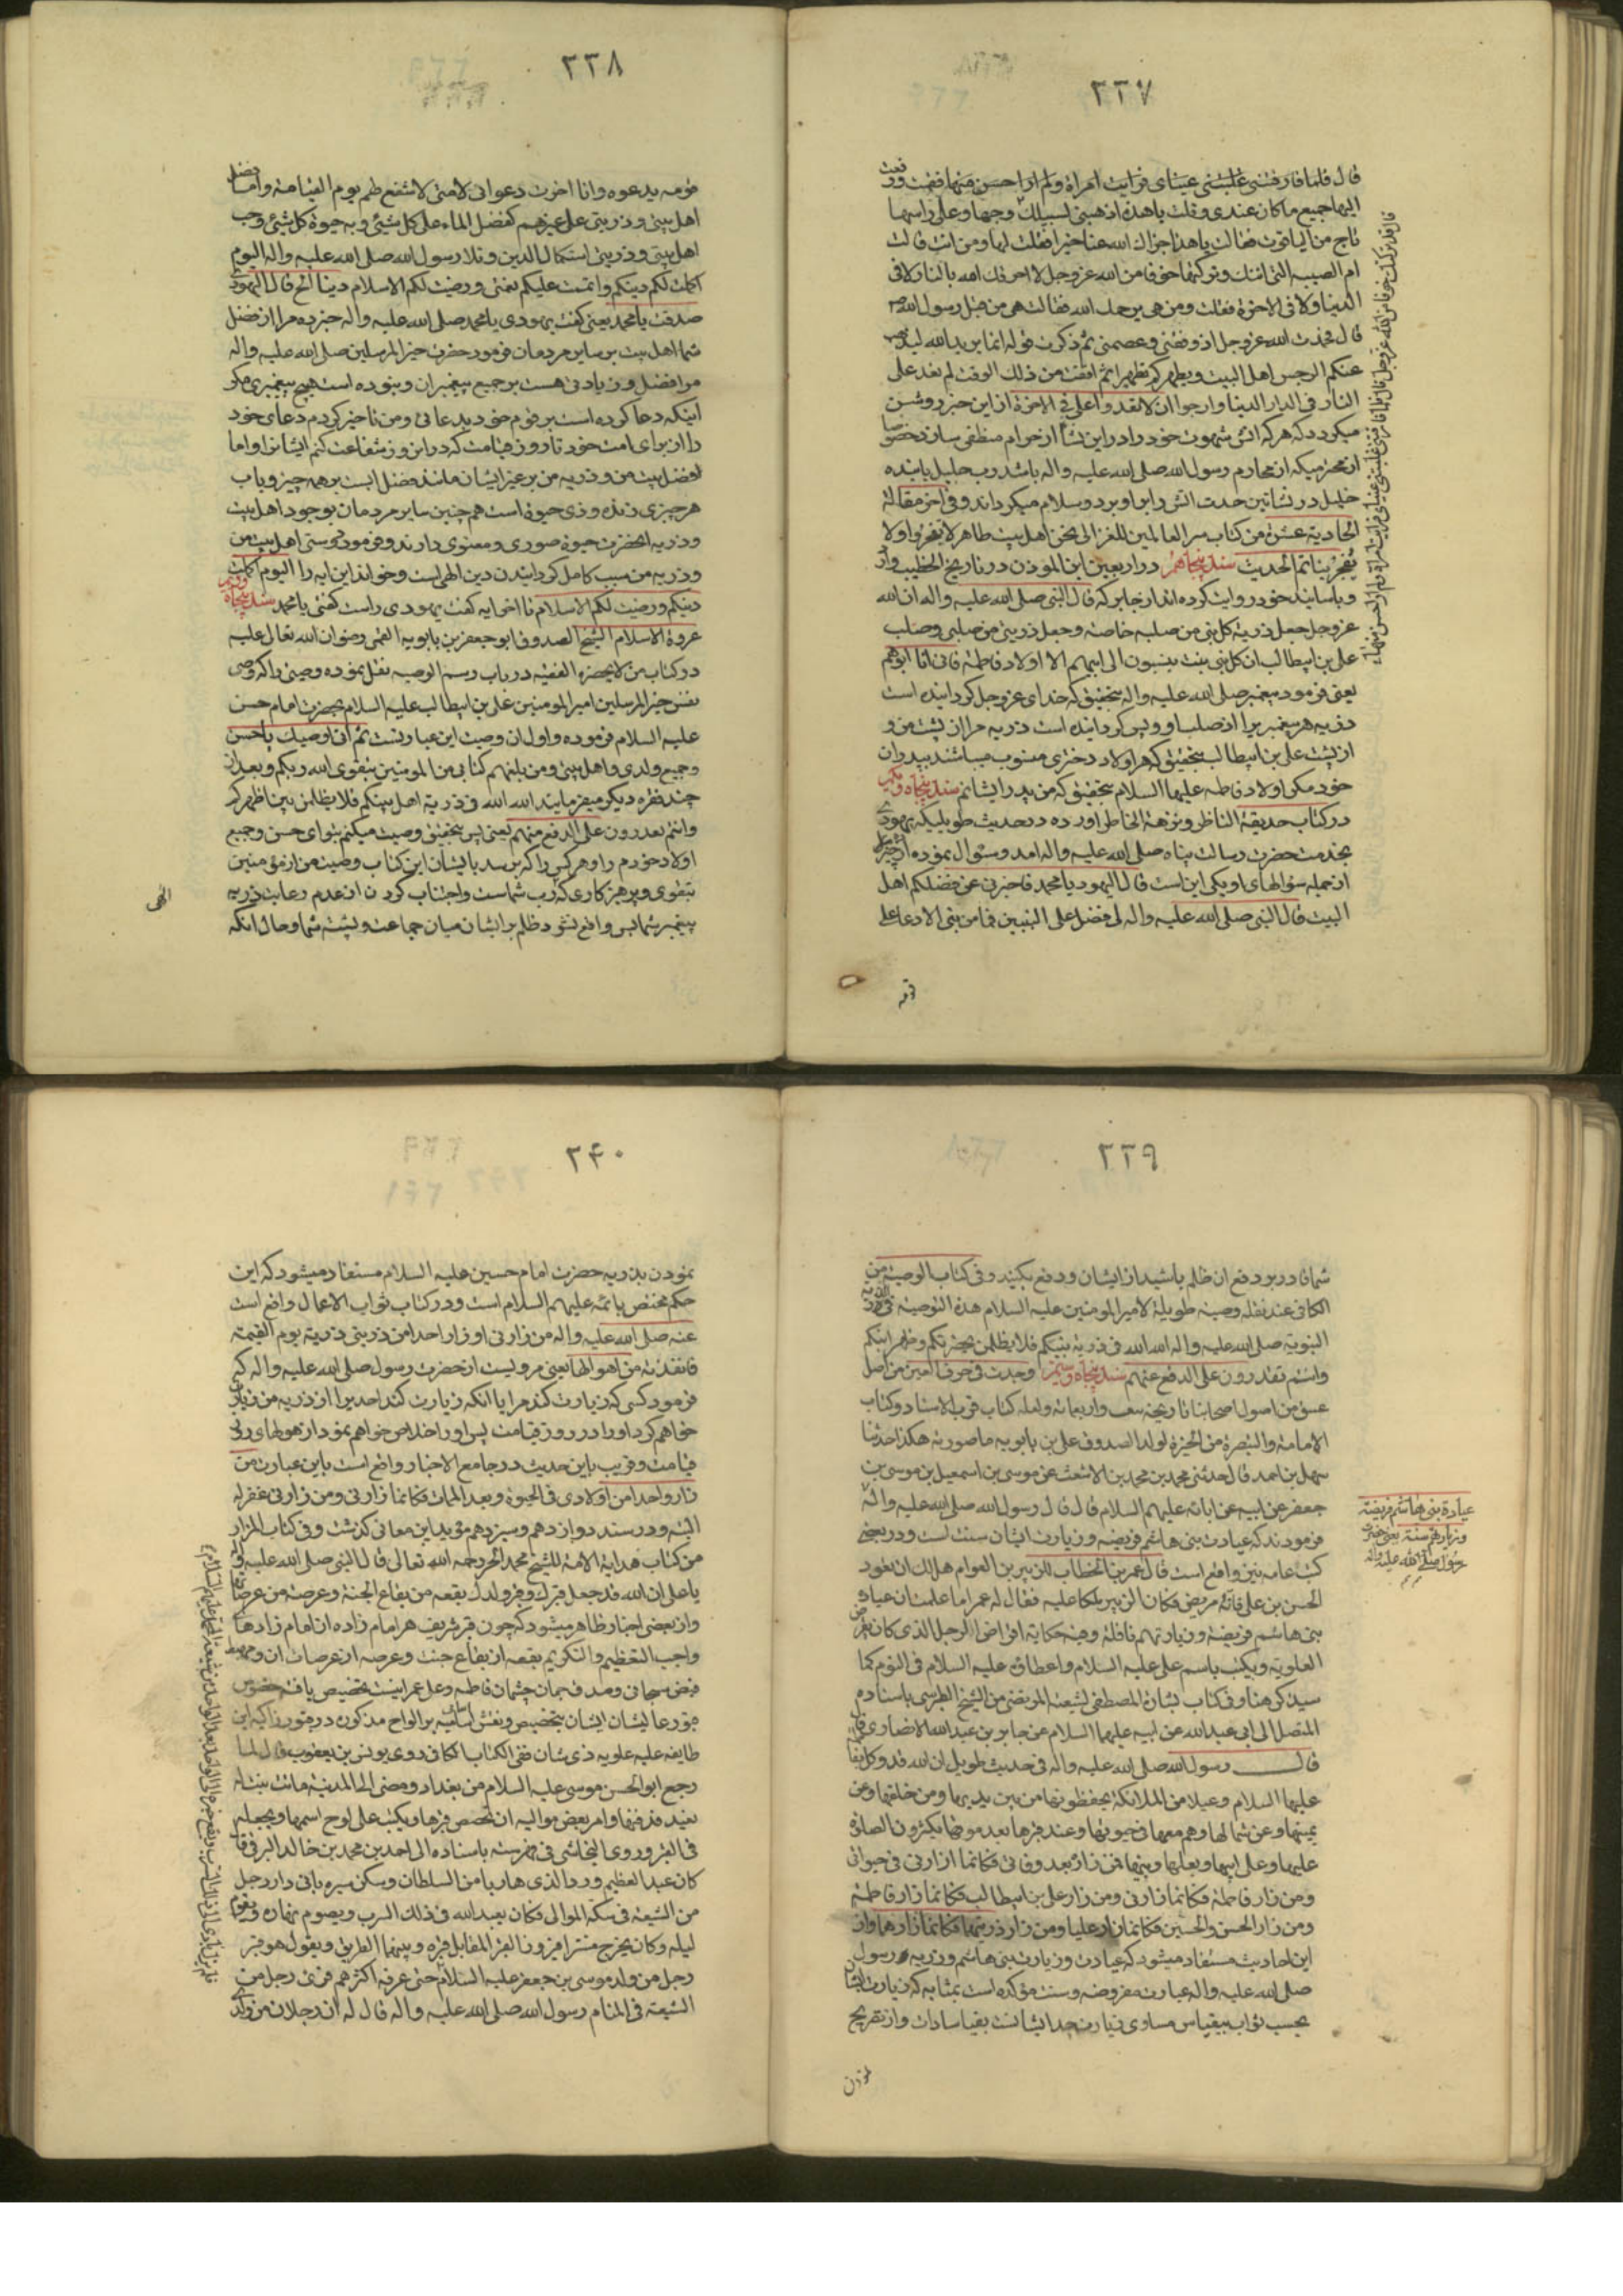 ٢٣٧
قال فلما فارقتنی غلبتنی عینای فرایت امراة ولم ار احسن منها فقمت ودفعت
الیها جمیع ما کان عندی وقلت یا هذه اذهبی لسبیلك وجها وعلی راسها
تاج من الیاقوت فقالت یا هذا جزاك الله عنا خیرا فقلت لها ومن انت قالت
ام الصبیه التی اتتك وترکتها خوفا من الله عز وجل لا احرقك الله بالنار لا فی
الدنیا ولا فی الاخرة فقلت ومن هی یرحمك الله فقالت هی من قبل رسول الله
قال فحمدت الله عز وجل اذ وفقنی وعصمنی ثم ذکرت قوله انما یرید الله لیذهب
عنکم الرجس اهل البیت ویطهرکم تطهیرا ثم افقت من ذلك الوقت لم تعد علی
النار فی الدار الدنیا وارجو ان لا تعدو علی فی الاخرة از این خبر روشن
میکردد که هر که اتش شهوت خود را در این نشأ از حرام منطفی سازد خصوصا
از محترمیکه از محارم رسول الله صلی الله علیه واله باشد رب جلیل باینده
خلیل در نشاتین حدت اتش را بر او برد وسلام میکرداند وفی اخر مقالة
الحادیة عشرة من کتاب سر العالمین للغزالی نحن اهل بیت طاهر لا نفجر ولا
یفجر بنا تم الحدیث سند پنجاهم در اربعین ابن الموذن در تاریخ الخطیب وار
وباسانید خود روایت کرده اند از جابر که قال النبی صلی الله علیه واله ان الله
عز وجل جعل ذریة کل نبی من صلبه خاصة وجعل ذریتی من صلبی وصلب
علی بن ابیطالب ان کل بنی بنت ینسبون الی ابیهم الا اولاد فاطمة فانی انا ابوهم
یعنی فرمود پیغمبر صلی الله علیه واله بتحقیق که خدای عز وجل کردانیده است
ذریه هر پیغمبر یرا از صلب او وپس کردانیده است ذریه مرا از پشت من و
از پشت علی بن ابیطالب بتحقیق که هر اولاد دختری منسوب میباشند بپدران
خود مکر اولاد فاطمه علیها السلام بتحقیق که من پدر ایشانم سند پنجاه ویکم
در کتاب حدیقة الناظر ونزهة الخاطر آورده در حدیث طویلیکه یهودی
بخدمت حضرت رسالت پناه صلی الله علیه واله امد وسئوال نموده از
از جمله سؤالهای او یکی این است قال الیهود یا محمد فاخبرنی عن فضلکم اهل
البیت قال النبی صلی الله علیه واله لی فضل علی النبیین فما من نبی الا دعا علی
قومه
٢٣٨
قومه بدعوة وانا اخرت دعوائی لامتی لاشفع لهم یوم القیامة واما فضل
اهل بیتی وذریتی علی غیرهم کفضل الماء علی کل شیئ وبه حیوة کل شیئ وحب
اهل بیتی وذریتی استکمال الدین وتلا رسول الله صلی الله علیه واله الیوم
اکملت لکم دینکم واتممت علیکم نعمتی ورضیت لکم الاسلام دینا الخ قال الیهودی
صدقت یا محمد یعنی کفت یهودی یا محمد صلی الله علیه واله خبر ده مرا از فضل
شما اهل بیت بر سایر مردمان فرمود حضرت خیر المرسلین صلی الله علیه واله
مرا فضل وزیادتی هست بر جمیع پیغمبران ونبوده است هیچ پیغمبری مکر
اینکه دعا کرده است بر قوم خود بدعائی ومن تاخیر کردم دعای خود
را از برای امت خود تا روز قیامت که در این روز شفاعت کنم ایشانرا واما
فضل بیت من وذریه من بر غیر ایشان مانند فضل ابست بر همه چیز وباب
هر چیزی زنده وذی حیوة است هم چنین سایر مردمان بوجود اهل بیت
وذریه انحضرت حیوة صوری ومعنوی دارند وفرمود دوستی اهل بیت من
وذریه من سبب کامل کردانیدن دین الهی است وخواند این ایه را الیوم اکملت
دینکم ورضیت لکم الاسلام تا اخر ایه کفت یهودی راست کفتی یا محمد سند پنجاه ودویم
عروة الاسلام الشیخ الصدوق ابو جعفر بن بابویه القمی رضوان الله تعالی علیه
در کتاب من لا یحضره الفقیه در باب رسم الوصیه نقل نموده وصیتی را که وصی
نفس خیر المرسلین امیر المومنین علی بن ابیطالب علیه السلام بحضرت امام حسن
علیه السلام فرموده واول ان وصیت این عبارتست ثم انی اوصیك یا حسن
وجمیع ولدی واهل بیتی ومن بلغهم کتابی من المومنین بتقوی الله ربکم وبعد از
چند فقره دیکر میفرمایند الله الله فی ذریة اهل بیتکم فلا یظلمن بین اظهرکم
وانتم تقدرون علی الدفع عنهم یعنی پس بتحقیق وصیت میکنم بتو ای حسن وجمیع
اولاد خودم را وهر کس را که برسد بایشان این کتاب وصیت من از مؤمنین
بتقوی وپرهیز کاری که رب شماست واجتناب کردن از عدم رعایت ذریه
پیغمبر شما پس واقع نشود ظلم بر ایشان میان جماعت وپشت شما وحال انکه
٢٣٩
شما قادر بر دفع ان ظلم باشید از ایشان ودفع بکنید وفی کتاب الوصیة من
الکافی عند نقله وصیة طویلة لامیر المومنین علیه السلام هذه التوصیة فی الذریة
النبویة صلی الله علیه واله الله الله فی ذریة نبیکم فلا یظلمن بحضرتکم وظهرانیکم
وانتم تقدرون علی الدفع عنهم سند پنجاه وسیم وجدت فی حرف العین من اصل
عتیق من اصول اصحابنا تاریخه سبع واربعمائة ولعله کتاب قرب الاسناد وکتاب
الامامة والتبصرة من الحیرة لولد الصدوق علی بن بابویه ما صورته هکذا حدثنا
سهل بن احمد قال حدثنی محمد بن محمد بن الاشعث عن موسی بن اسمعیل بن موسی بن
جعفر عن ابیه عن ابائه علیهم السلام قال قال رسول الله صلی الله علیه واله
فرمودند که عیادت بنی هاشم فریضه وزیارت ایشان سنت است ودر بعضی
کتب عامه نیز واقع است قال عمر بن الخطاب للزبیر بن العوام هل لك ان تعود
الحسن بن علی فانه مریض فکان الزبیر تلکأ علیه فقال له عمر اما علمت ان عیادة
بنی هاشم فریضة وزیارتهم نافلة وفیه حکایة اقراض الرجل الذی کان یقرض
العلویة ویکتب باسم علی علیه السلام واعطاؤه علیه السلام فی النوم کما
سیذکر هنا وفی کتاب بشارة المصطفی لشیعة المرتضی من الشیخ الطبرسی باسناده
المتصل الی ابی عبدالله عن ابیه علیهما السلام عن جابر بن عبدالله الانصاری قال
قال رسول الله صلی الله علیه واله فی حدیث طویل ان الله قد وکل بفاطمة
علیها السلام رعیلا من الملائکة یحفظونها من بین یدیها ومن خلفها وعن
یمینها وعن شمالها وهم معها فی حیوتها وعند قبرها بعد موتها یکثرون الصلوة
علیها وعلی ابیها وبعلها وبنیها فمن زارنی بعد وفاتی فکانما زارنی فی حیوتی
ومن زار فاطمة فکانما زارنی ومن زار علی بن ابیطالب فکانما زار فاطمة
ومن زار الحسن والحسین فکانما زار علیا ومن زار ذریتهما فکانما زارهما واز
این احادیث مستفاد میشود که عیادت وزیارت بنی هاشم وذریه رسول
صلی الله علیه واله عبارت مفروضه وسنت مؤکده است بمثابه که زیارت ایشان
بحسب ثواب بیقیاس مساوی زیارت جد ایشانست بقیاسادات واز تفریع
نمودن
عیادة بنی هاشم فریضة
وزیارتهم سنة یعنی حضرت
رسول صلی الله علیه واله
٢۴٠
نمودن بذریه حضرت امام حسین علیه السلام مستفاد میشود که این
حکم مختص بائمه علیهم السلام است ودر کتاب ثواب الاعمال واقع است
عنه صلی الله علیه واله من زارنی او زار احدا من ذریتی ذریته یوم القیمة
فانقذته من اهوالها یعنی مرویست از حضرت رسول صلی الله علیه واله که
فرمود کسی که زیارت کند مرا یا انکه زیارت کند احدیرا از ذریه من زیارت
خواهم کرد او را در روز قیامت پس او را خلاص خواهم نمود از هولهای
قیامت وقریب باین حدیث در جامع الاخبار واقع است باین عبارت من
زار واحدا من اولادی فی الحیوة وبعد الممات فکانما زارنی ومن زارنی غفر له
البته ودر سند دوازدهم وسیزدهم مؤید این معانی کذشت وفی کتاب المزار
من کتاب هدایة الامة للشیخ محمد الحر رحمه الله تعالی قال النبی صلی الله علیه واله
یا علی ان الله قد جعل قبرك وقبر ولدك بقعه من بقاع الجنة وعرصة من عرصاتها
واز بعضی اخبار ظاهر میشود که چون قبر شریف هر امام زاده از امام زادها
واجب التعظیم والتکریم بقعه از بقاع جنت وعرصه از عرصات ان
طایفه علیه علویه ذی شان ففی الکتاب الکافی روی یونس بن یعقوب قال لما
رجع ابو الحسن موسی علیه السلام من بغداد ومضی الی المدینة ماتت بنت له
بفید فدفنها وامر بعض موالیه ان یجصص قبرها ویکتب علی لوح اسمها ویجعله
فی القبر وروی النجاشی فی فهرسته باسناده الی احمد بن محمد بن خالد البرقی قال
کان عبد العظیم ورد الری هاربا من السلطان وسکن سربا فی دار رجل
من الشیعة فی سکة الموالی فکان یعبد الله فی ذلك السرب ویصوم نهاره ویقوم
لیله وکان یخرج مستترا فیزور القبر المقابل قبره وبینهما الطریق ویقول هو قبر
رجل من ولد موسی بن جعفر علیه السلام حتی عرفه اکثرهم فرئی رجل من
الشیعة فی المنام رسول الله صلی الله علیه واله قال له ان رجلا من ولدی